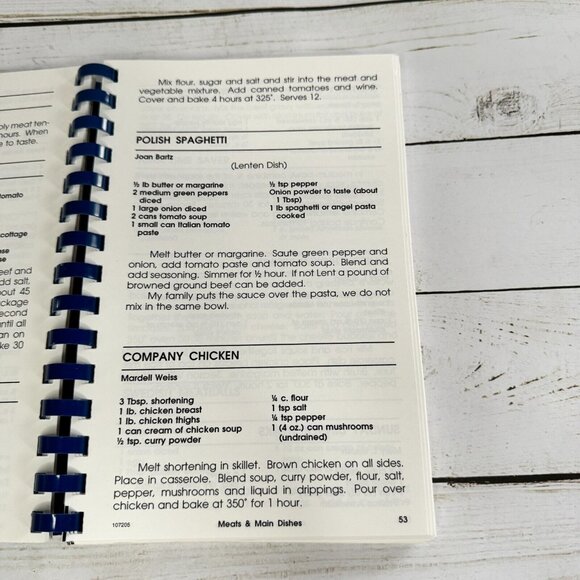 ply meat ten-
hours. When
e to taste.
tomato
cottage
ese
se
eef and
dd salt,
bout 45
ackage
econd
until all
an on
ke 30
Mix flour, sugar and salt and stir into the meat and
vegetable mixture. Add canned tomatoes and wine.
Cover and bake 4 hours at 325°. Serves 12.
POLISH SPAGHETTI
Joan Bartz
(Lenten Dish)
½ lb butter or margarine
2 medium green peppers
diced
1 large onion diced
2 cans tomato soup
1 small can Italian tomato
paste
½ tsp pepper
Onion powder to taste (about
1 Tbsp)
1 lb spaghetti or angel pasta
cooked
Melt butter or margarine. Saute green pepper and
onion, add tomato paste and tomato soup. Blend and
add seasoning. Simmer for ½ hour. If not Lent a pound of
browned ground beef can be added.
My family puts the sauce over the pasta, we do not
mix in the same bowl.
COMPANY CHICKEN
Mardell Weiss
3 Tbsp. shortening
1 lb. chicken breast
1 lb. chicken thighs
1 can cream of chicken soup
½ tsp. curry powder
¼ c. flour
1 tsp salt
¼ tsp pepper
1 (4 oz.) can mushrooms
(undrained)
Melt shortening in skillet. Brown chicken on all sides.
Place in casserole. Blend soup, curry powder, flour, salt,
pepper, mushrooms and liquid in drippings. Pour over
chicken and bake at 350° for 1 hour.
107205
Meats & Main Dishes
53